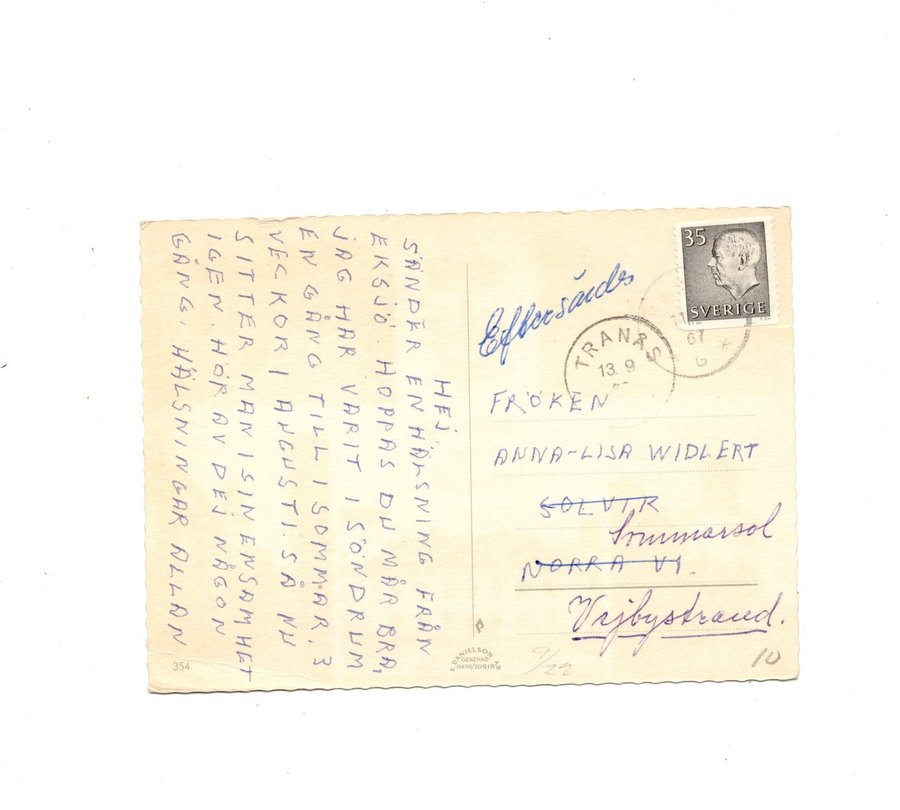 HEJ.
SÄNDER EN HÄLSNING FRÅN
EKSJÖ HOPPAS DU MÅR BRA,
JAG HAR VARIT I SÖNDRUM
EN GÅNG TILL I SOMMAR. 3
VECKOR I AUGUSTI. SÅ NU
SITTER MAN I SIN ENSAMHET
IGEN. HÖR AV DEJ NÅGON
GÅNG. HÄLSNINGAR ALLAN
354
E. DANIELSON AB
GENEVAD
0430/70218
9/22
Eftersändes
35
SVERIGE
67
TRANÅS
13. 9
FRÖKEN
ANNA-LISA WIDLERT
SOLVIK
Sommarsol
NORRA VI.
Vejbystrand.
10